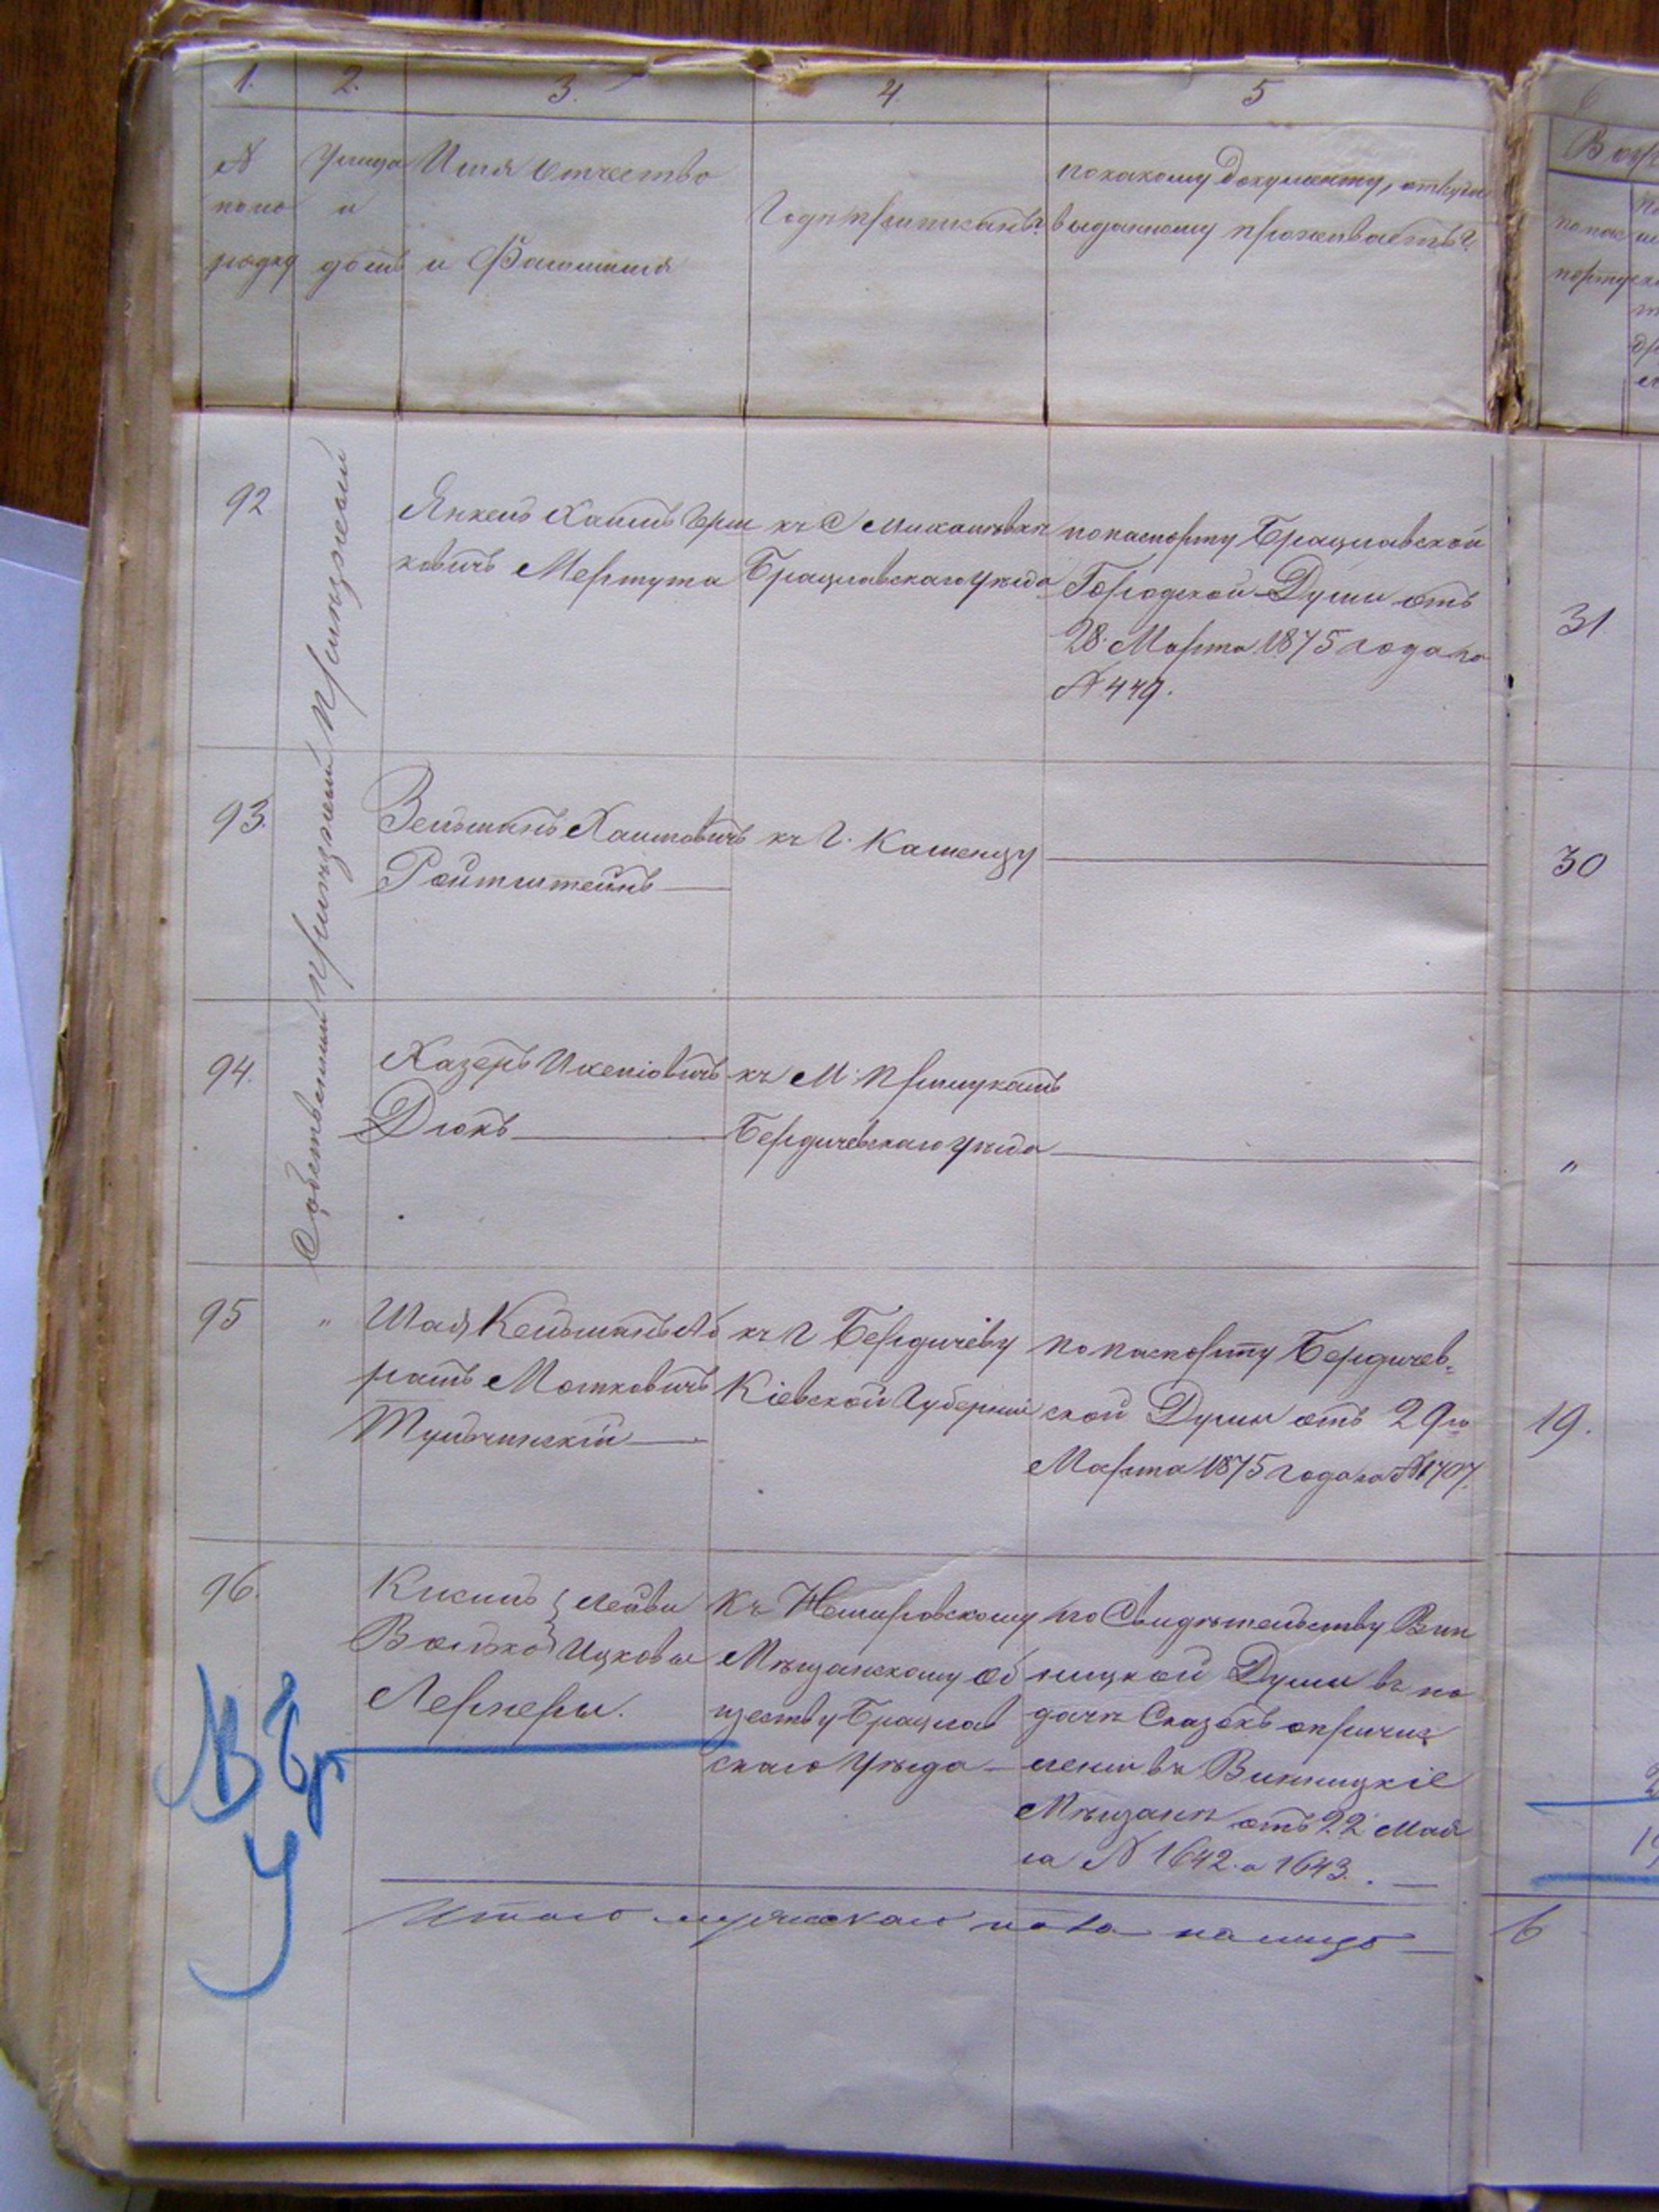 1. 2. 3. 4. 5
№ по по рядку
Улица и домъ
Имя Отчество
и Фамилія
Гдѣ приписанъ?
по какому Документу, откуда
выданному проживаетъ?
92
Янкель Хаимъ Гершковичъ Мертута
къ С
Брацлавскаго уѣзда
по паспорту Брацлавской
Городской Думы отъ
28. Марта 1875 года за
№ 449.
31
93.
Зельманъ Хаимовичъ
Ройтштейнъ
къ Г. Каменцу
30
94.
Дюкъ
къ М.
Бердичевскаго уѣзда
"
95
"
Шая Кельманъ Аб
рамъ Мошковичъ
Тульчинскій
къ Г Бердичеву
Кіевской Губерніи
по паспорту Бердичев-
ской Думы отъ 29го
Марта 1875 года за № 1707.
19.
96.
Кисиль Лейви
Волько Ицковы
Лернеры.
Къ Немировскому
Мѣщанскому Об
ществу Брацлав
скаго Уѣзда
по Свидѣтельству Вин
ницкой Думы въ по
дачѣ Сказокъ о причис
леніи въ Винницкіе
Мѣщане отъ 22 Мая
за № 1642. и 1643.
Итого мужскаго пола на лицо
6